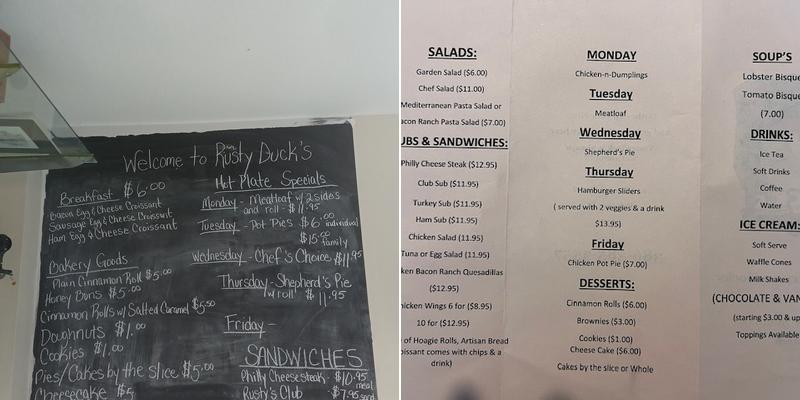 Welcome to Rusty Duck's
Breakfast $6.00
Bacon Egg & Cheese Croissant
Sausage Egg & Cheese Croissant
Ham Egg & Cheese Croissant
Bakery Goods
Plain Cinnamon Roll $5.00
Honey Buns $5.00
Cinnamon Rolls w/ Salted Caramel $5.50
Doughnuts $1.00
Cookies $1.00
Pies/Cakes by the slice $5.00
Cheesecake $5
Hot Plate Specials
Monday - Meatloaf w/ 2 sides
and roll - $11.95
Tuesday - Pot Pies $6.00 individual
$15.00 family
Wednesday - Chef's Choice $11.95
Thursday - Shepherd's Pie
w/ roll $11.95
Friday -
SANDWICHES
Philly Cheesesteak - $10.95
meal
Rusty's Club $7.95
SALADS:
Garden Salad ($6.00)
Chef Salad ($11.00)
Mediterranean Pasta Salad or
acon Ranch Pasta Salad ($7.00)
UBS & SANDWICHES:
Philly Cheese Steak ($12.95)
Club Sub ($11.95)
Turkey Sub ($11.95)
Ham Sub ($11.95)
Chicken Salad (11.95)
Tuna or Egg Salad (11.95)
ken Bacon Ranch Quesadillas
($12.95)
hicken Wings 6 for ($8.95)
10 for ($12.95)
e of Hoagie Rolls, Artisan Bread
oissant comes with chips & a
drink)
MONDAY
Chicken-n-Dumplings
Tuesday
Meatloaf
Wednesday
Shepherd's Pie
Thursday
Hamburger Sliders
( served with 2 veggies & a drink
$13.95)
Friday
Chicken Pot Pie ($7.00)
DESSERTS:
Cinnamon Rolls ($6.00)
Brownies ($3.00)
Cookies ($1.00)
Cheese Cake ($6.00)
Cakes by the slice or Whole
SOUP'S
Lobster Bisque
Tomato Bisque
(7.00)
DRINKS:
Ice Tea
Soft Drinks
Coffee
Water
ICE CREAM:
Soft Serve
Waffle Cones
Milk Shakes
(CHOCOLATE & VAN
(starting $3.00 & up
Toppings Available